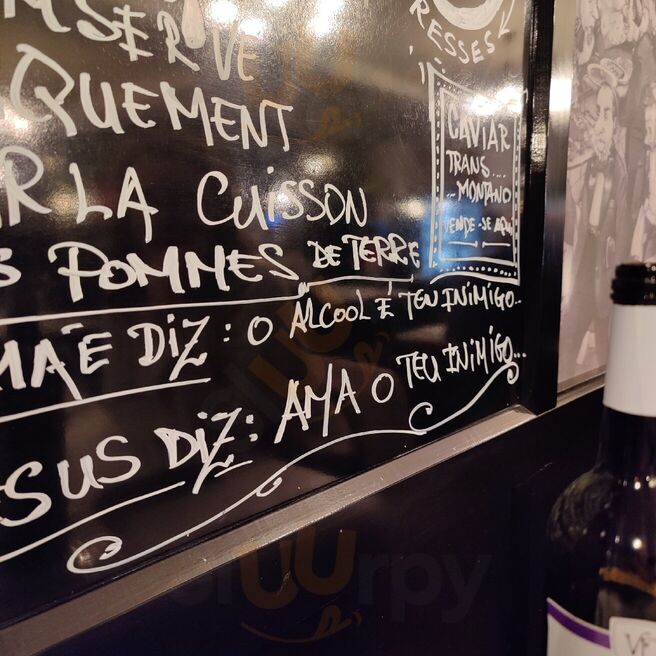 SERVE
QUEMENT
LA CUISSON
POMMES DE TERRE
MÃE DIZ: O ALCOOL É TEU INIMIGO...
SUS DIZ: AMA O TEU INIMIGO...
RESSES
CAVIAR
TRANS...
...MONTANO
VENDE-SE AQUI